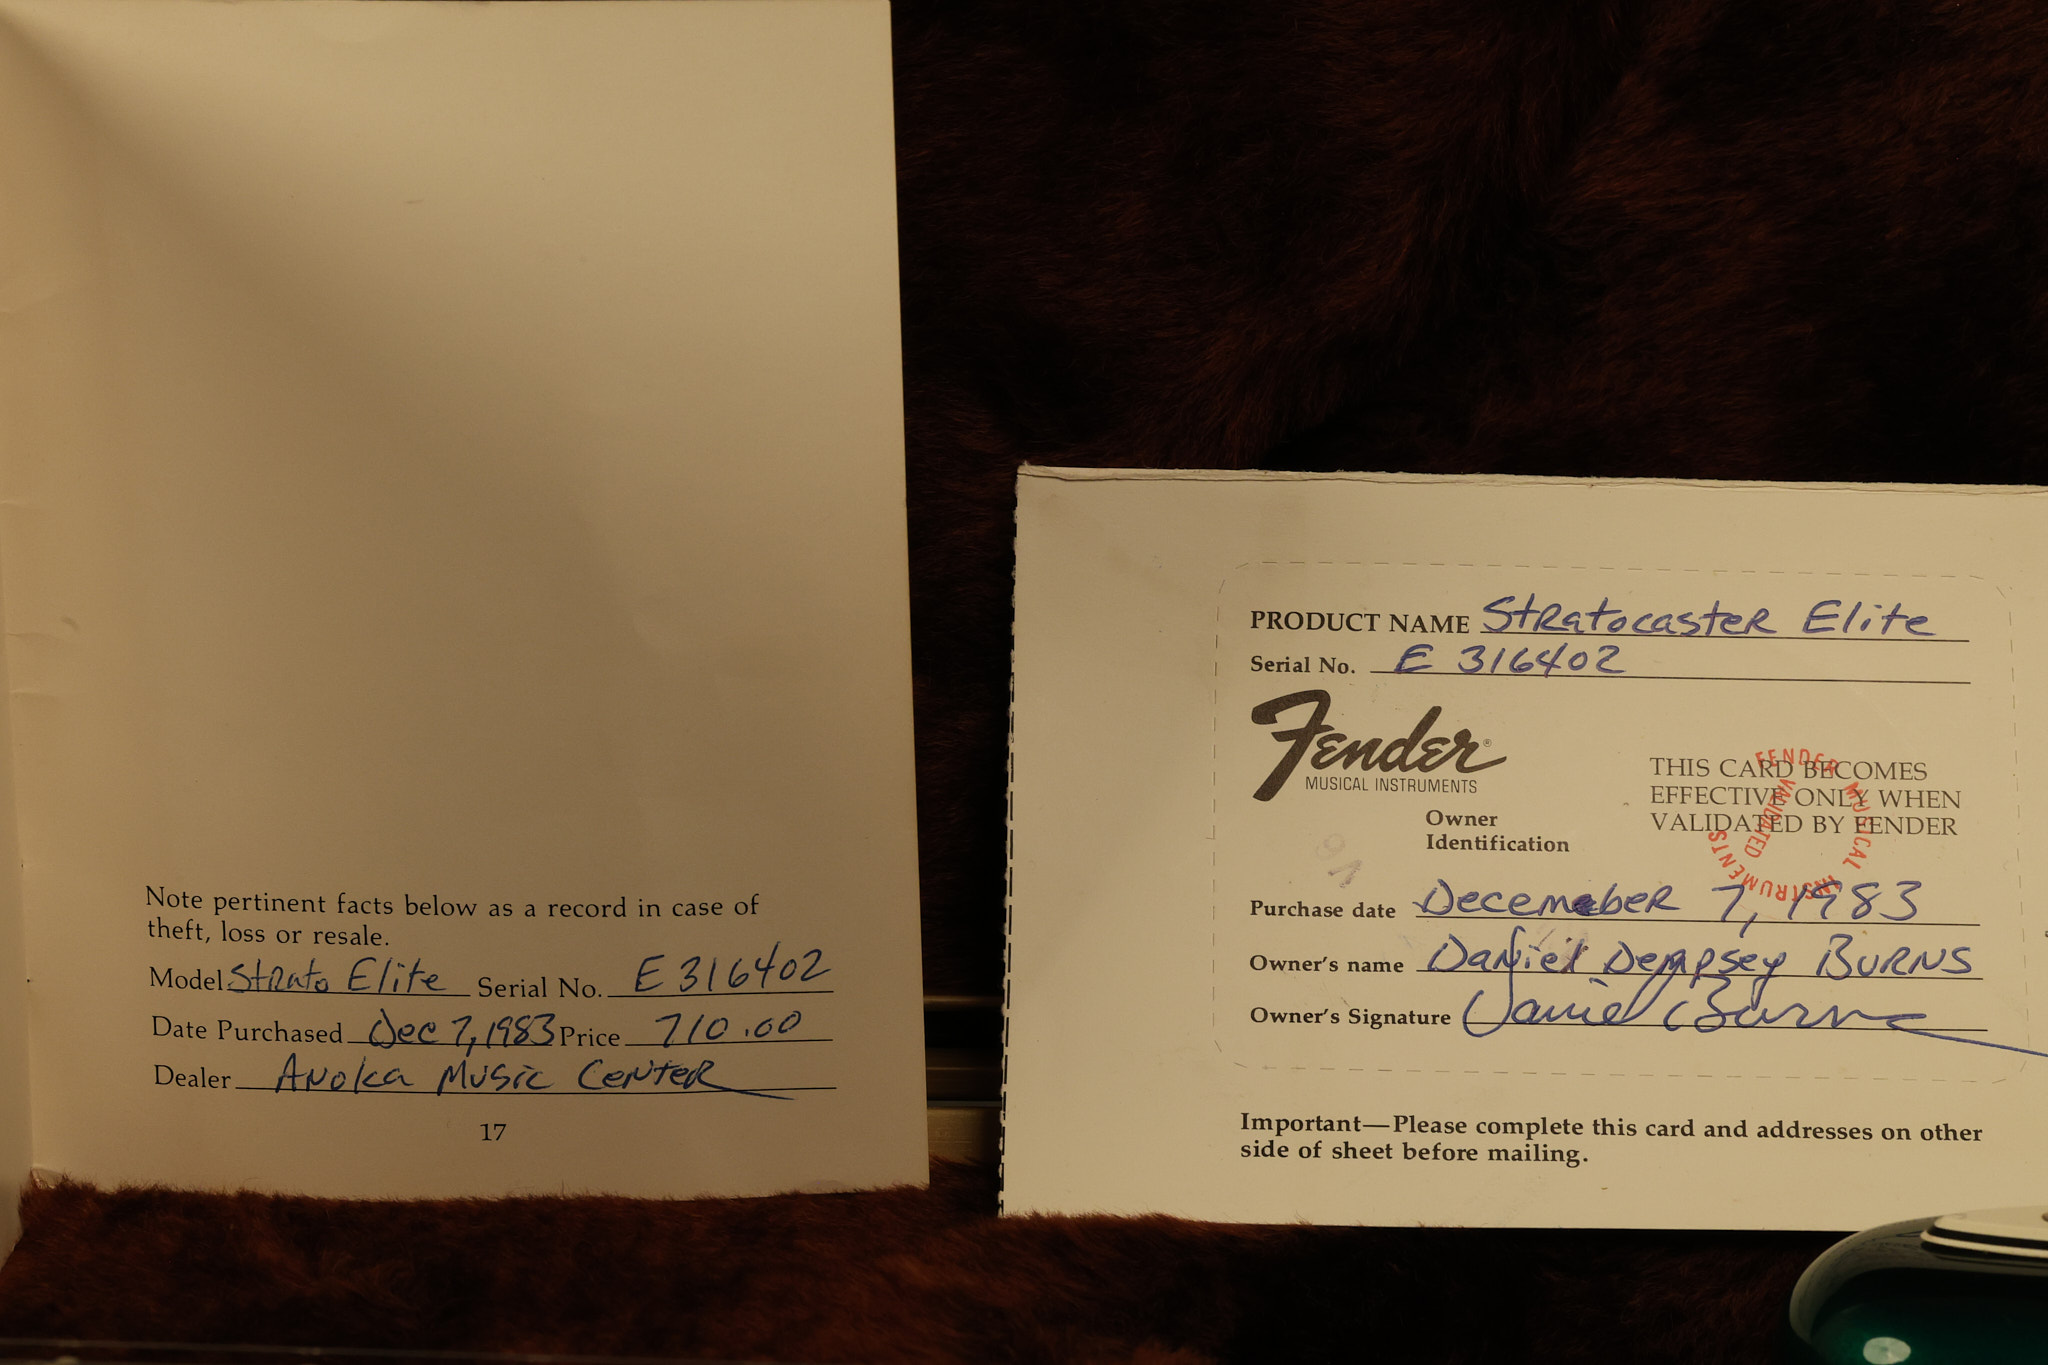 Note pertinent facts below as a record in case of
theft, loss or resale.
Model Strato Elite Serial No. E 316402
Date Purchased Dec 7, 1983 Price 710.00
Dealer Anoka Music Center
17
PRODUCT NAME Stratocaster Elite
Serial No. E 316402
Fender®
MUSICAL INSTRUMENTS
Owner
Identification
THIS CARD BECOMES
EFFECTIVE ONLY WHEN
VALIDATED BY FENDER
FENDER MUSICAL INSTRUMENTS
VALIDATED
Purchase date December 7, 1983
Owner's name Daniel Dempsey Burns
Owner's Signature Daniel Burns
Important—Please complete this card and addresses on other
side of sheet before mailing.